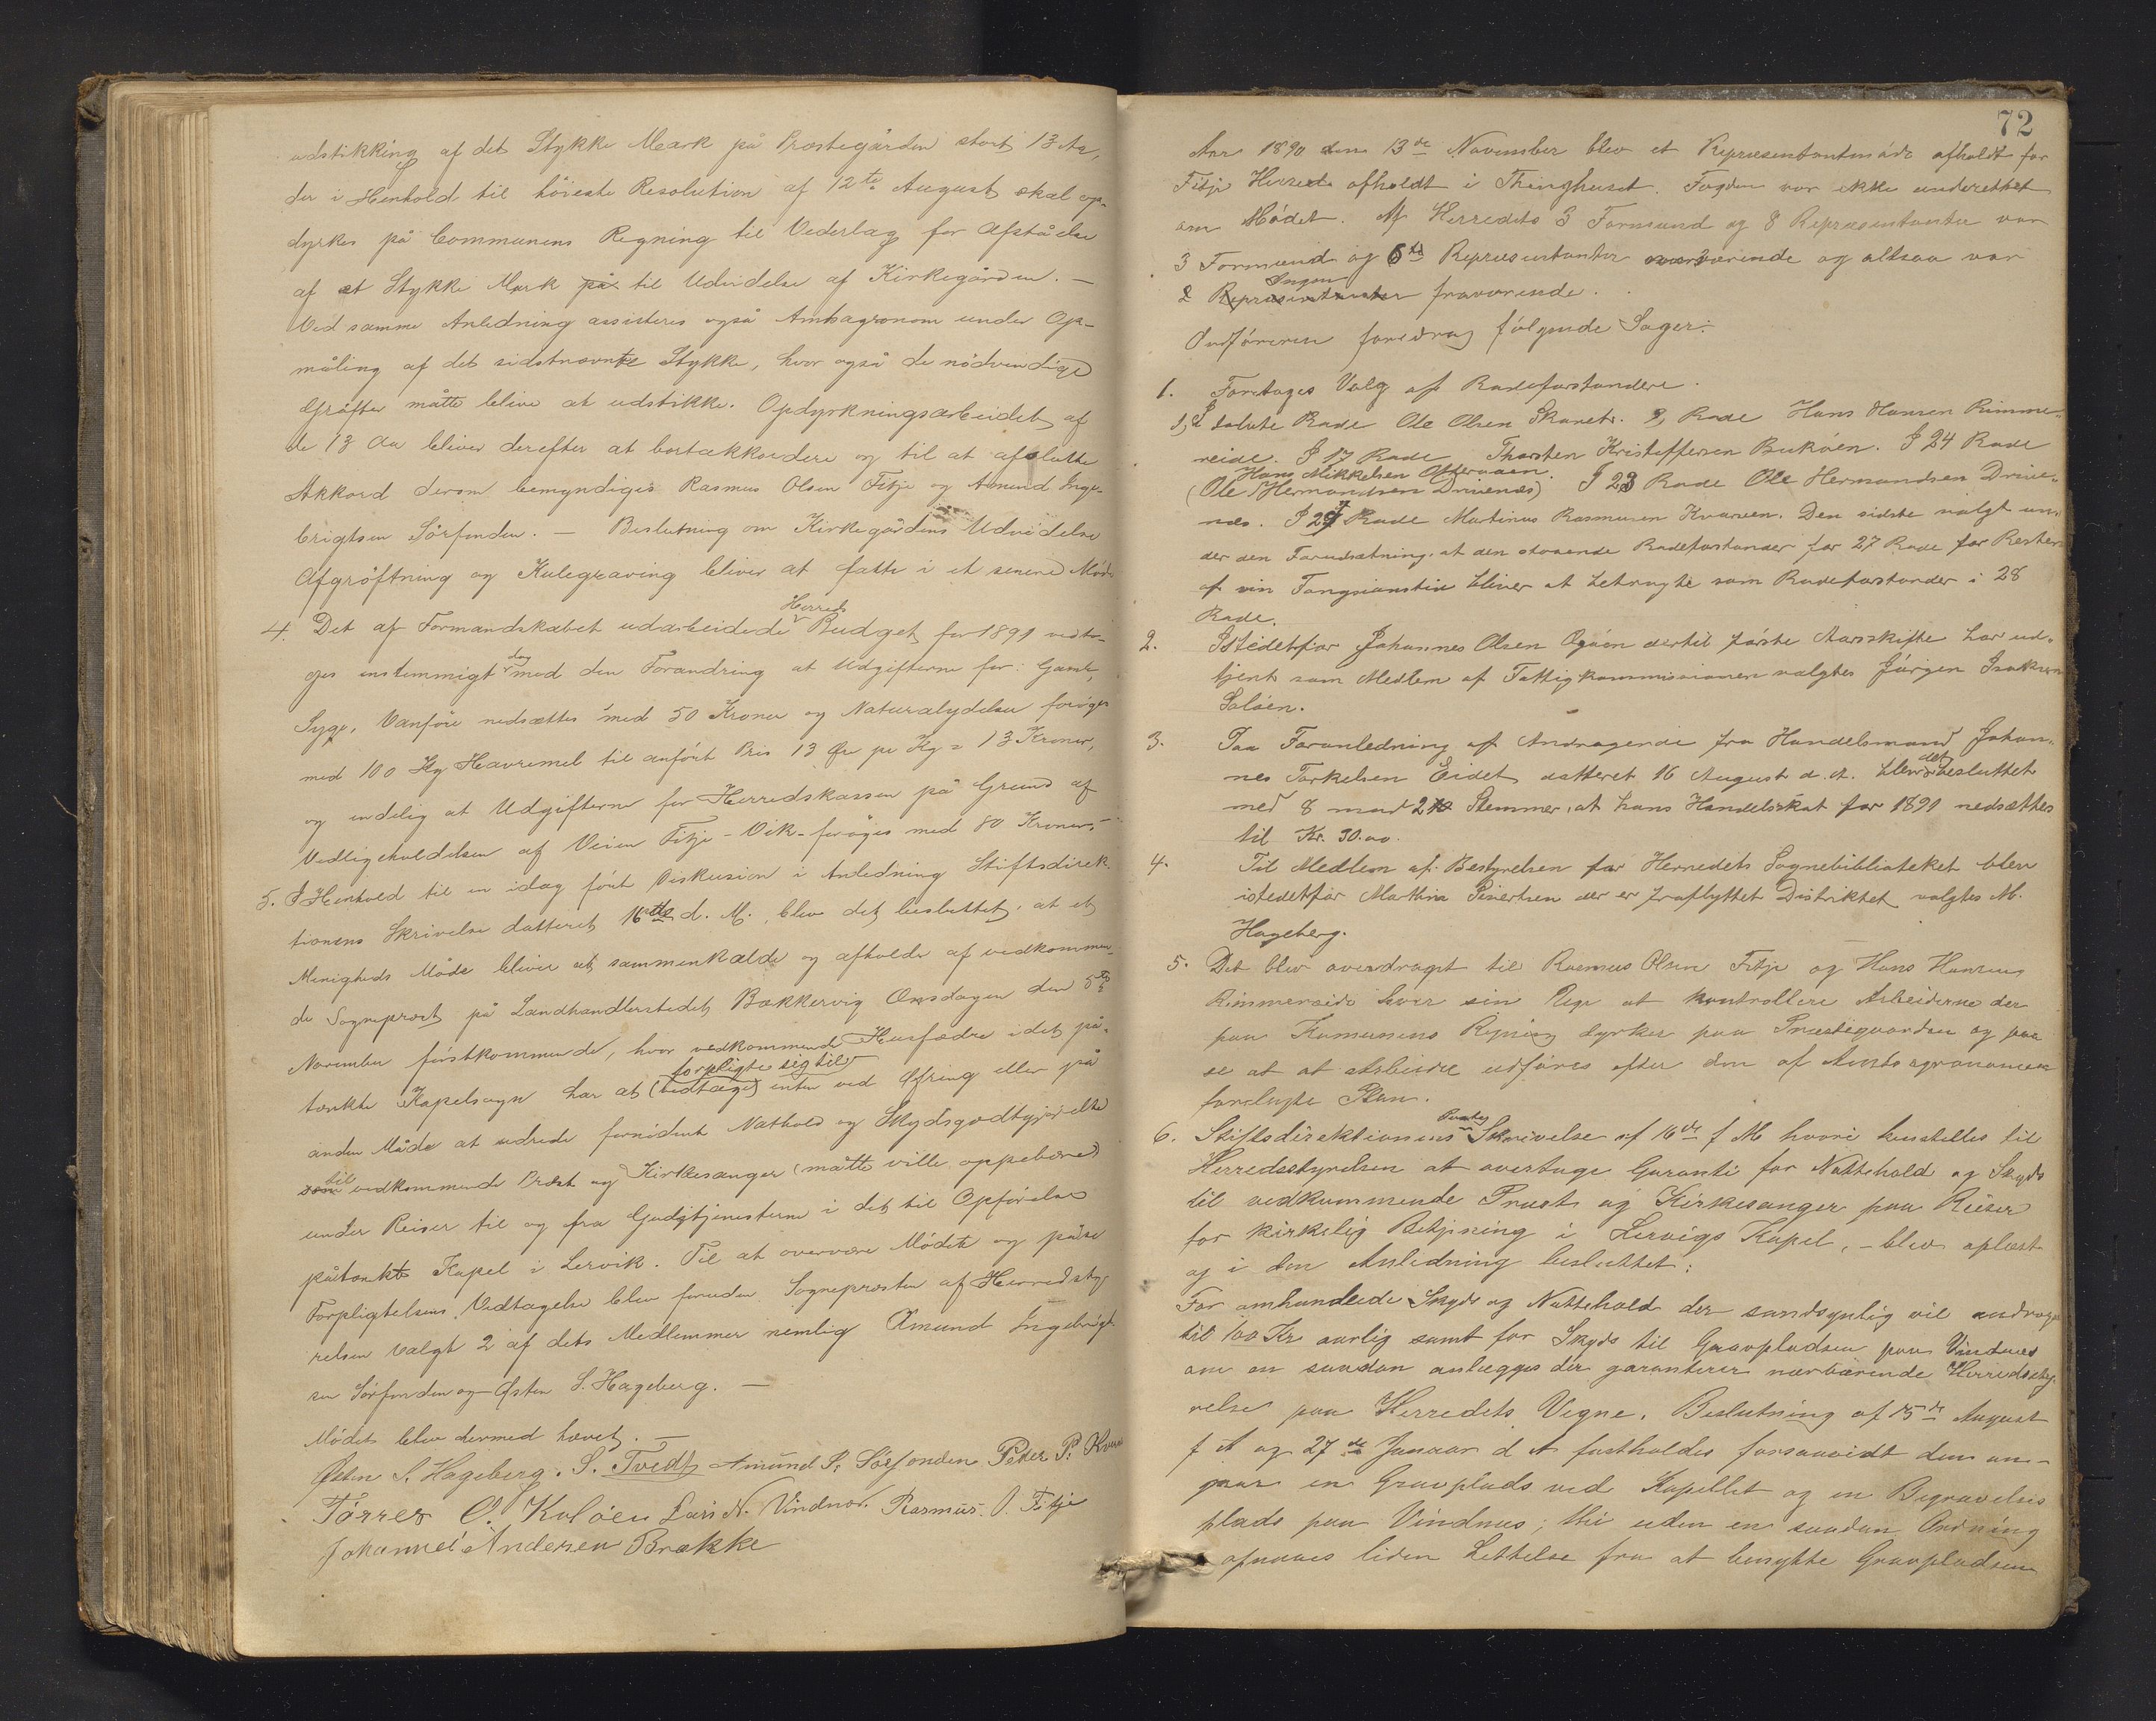 udstikking af det Stykke Mark på Præstegården stort 13 Ar,
der i Henhold til höieste Resolution af 12te August skal op-
dyrkes på Communens Regning til Vederlag for Afståelse
af et Stykke Mark på til Udvidelse af Kirkegården. —
Ved samme Anledning assisteres også Amtsagronom under Op-
måling af det sidstnævnte Stykke, hvor også de nödvendige
Gröfter måtte blive at udstikke. Opdyrkningsarbeidet af
de 13 Ar bliver derefter at bortakkordere og til at afslutte
Akkord derom bemyndiges Rasmus Olsen Fitje og Amund Inge-
brigtsen Sörfonden. — Beslutning om Kirkegårdens Udvidelse
Afgröftning og Kulegraving bliver at fatte i et senere Möde
4. Det af Formandskabet udarbeidede Herreds Budget for 1891 vedto-
ges enstemmigt dog med den Forandring at Udgifterne for: Gamle,
Syge, Vanföre nedsættes med 50 Kroner og Naturalydelser foröges
med 100 Kg Havremel til anfört Pris 13 Öre pr Kg = 13 Kroner,
og endelig at Udgifterne for Herredskassen på Grund af
Vedligeholdelsen af Veien Fitje - Vik - foröges med 80 Kroner. —
5. I Henhold til en idag fört Diskusion i Anledning Stiftsdirek-
tionens Skrivelse datteret 16de d. M. blev det besluttet, at et
Menigheds Möde bliver at sammenkalde og afholde af vedkommen-
de Sogneprest på Landhandlerstedet Bækkervig Onsdagen den 5te
November förstkommende, hvor vedkommende Husfædre i det på-
tænkte Kapelsogn har at (vedtage) forpligte sig til enten ved Ofring eller på
anden Måde at udrede fornödent Nathold og Skydsgodtgjörelse
som til vedkommende Præst og Kirkesanger (måtte ville oppebære)
under Reiser til og fra Gudstjenesterne i det til Opförelse
påtænkte Kapel i Lervik. Til at overvære Mödet og påse
Forpligtelsens Vedtagelse blev foruden Sognepresten af Herredsty-
relsen valgt 2 af dets Medlemmer nemlig Amund Ingebrigt-
sen Sörfonden og Østen S. Hageberg. —
Mödet blev dermed hævet. —
Østen S. Hageberg. S. Tvedt Amund I. Sörfonden Peter P.
Törres O. Kulöen Lars N. Vindnæs. Rasmus O. Fitje
Johannes Andersen Brække
72
Aar 1890 den 13de November blev et Repræsentantmöde afholdt for
Fitje Herred afholdt i Thinghuset. Fogden var ikke underettet
om Mödet. Af Herredets 3 Formænd og 8 Repræsentanter var
3 Formænd og 8te Repræsentanter nærværende og altsaa var
2 Repræsentanter Ingen fraværende.
Ordföreren foredrog fölgende Sager:
1. Foretages Valg af Rodeforstandere.
1, I halvte Rode Ole Olsen Skaret. 2, Rode Hans Hansen Rimme-
reide. I 17 Rode Thorsten Kristoffersen Buköen. I 24 Rode
Hans Mikkelsen Otteraaen.
(Ole Hermandsen Drivenæs) I 23 Rode Ole Hermandsen Drive-
næs. I 27 Rode Martinus Rasmusen Kvarven. Den sidste valgt un-
der den Forudsætning, at den staaende Rodeforstander for 27 Rode for Resten
af sin Fungsionstid bliver at betragte som Rodeforstander i 28
Rode.
2. Istedetfor Johannes Olsen der til förste Aarsskifte har ud-
tjent som Medlem af Fattigkommissionen valgtes Jörgen Isaksen
Salöen.
3. Paa Foranledning af Andragende fra Handelsmand Johan-
nes Torkelsen Eidet datteret 16 August d. A. blev det besluttet
med 8 mod 2 Stemmer, at hans Handelsskat for 1891 nedsættes
til Kr. 30.00.
4. Til Medlem af Bestyrelsen for Herredets Sognebibliotheket blev
istedetfor Mathias Sivertsen der er fraflyttet Distriktet valgtes M.
Hageberg.
5. Det blev overdraget til Rasmus Olsen Fitje og Hans Hansen
Rimmereide hver sin Uge at kontrollere Arbeiderne der
paa Komunens Regning dyrker paa Præstegaarden og paa
se at at Arbeidet udföres efter den af Amtsagronomen
forelagte Plan.
6. Stiftsdirektionens Skrivelse af 16de f M hvori henstilles til
Herredsstyrelsen at overtage Garanti for Nattehold og Skyds
til vedkommende Præst og Kirkesanger paa Reiser
for kirkelig Betjening i Lervigs Kapel, – blev oplæst
og i den Anledning besluttet:
For omhandlede Skyds og Nattehold der sandsynlig vil andrage
til 100 Kr aarlig samt for Skyds til Gravpladsen paa Vindnæs
om en saadan anlægges der garanterer nærværende Herredssty-
relse paa Herredets Vegne. Beslutning af 15de August
f A og 27de Januar d A fastholdes forsaavidt dem an-
gaar en Gravplads ved Kapellet og en Begravelses
plads paa Vindnæs; thi uden en saadan Ordning
opnaaes liden Lettelse fra at benytte Gravpladsen